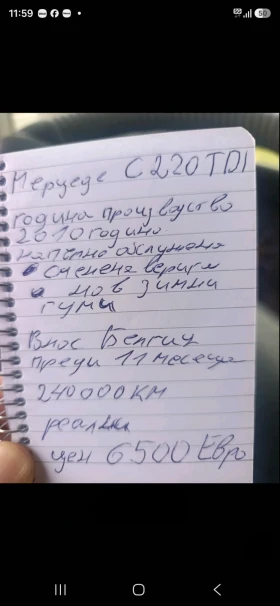 11:59
50
Мерцеде С 220 TDI
година производство
2010 година
напълно обслужена
сменена верига
нов зимни
гуми
Внос Белгия
преди 11 месеца
240000 КМ
реални
цен 6500 Евро